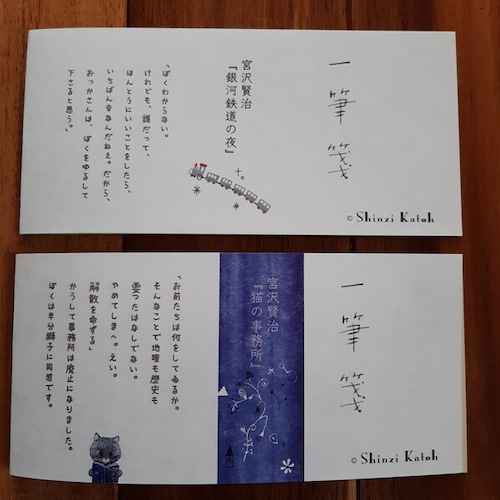 一筆箋
© Shinzi Katoh
宮沢賢治
『銀河鉄道の夜』
「ぼくわからない。
けれども、誰だって、
ほんとうにいいことをしたら、
いちばん幸なんだねえ。だから、
おっかさんは、ぼくをゆるして
下さると思う。」
一筆箋
© Shinzi Katoh
宮沢賢治
『猫の事務所』
「お前たちは何をしてゐるか。
そんなことで地理も歴史も
要ったはなしでない。
やめてしまへ。えい。
解散を命ずる」
かうして事務所は廃止になりました。
ぼくは半分獅子に同感です。